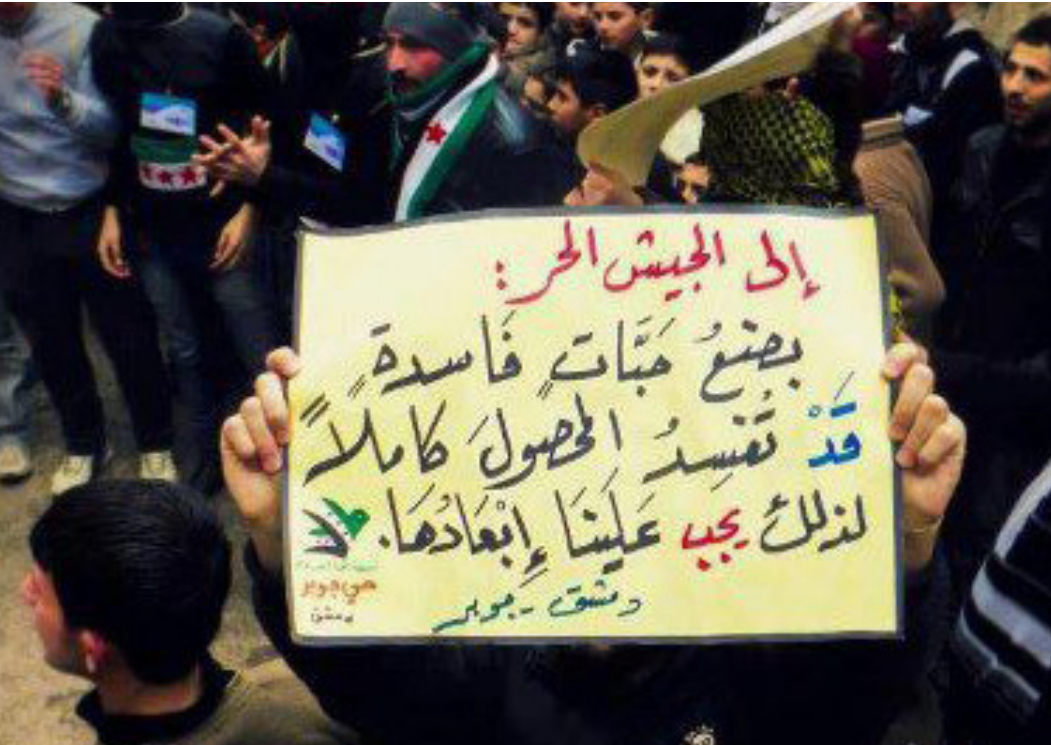 إلى الجيش الحر :
بضعُ حَبَّاتٍ فَاسدةٍ
قَدْ تُفسِدُ المحصولَ كاملاً
لذلك يجب عَلَينَا إِبْعَادُهَا.
دمشق - جوبر
حي جوبر
دمشق